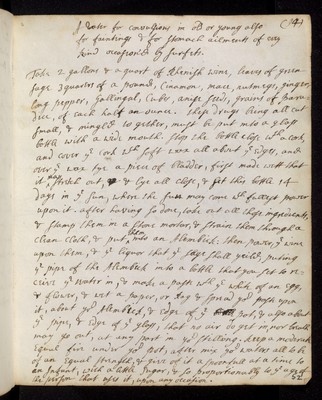 (14)
A Water for convulsions in old or young also
for fainting & for stomach ailments of any
kind occasioned by surfeits.
Take 2 gallons & a quart of Rhenish wine, leaves of green
sage 3 quarters of a pound, Cinamon, mace, nutmegs, ginger,
long pepper, Gallingal, Cubebs, anise seeds, grains of para-
dice, of each half an ounce. These drugs being all cut
small, & mingled together, must be put into a glass
bottle with a wide mouth. stop the bottle close with a cork,
and cover ye cork with soft wax all about ye edges, and
over ye wax tye a piece of bladder, first made wett that
it may stretch out, & tye all close, & set this bottle 14
days in ye sun, where the sun may come with fullest power
upon it. after having so done, take out all these ingredients,
& stamp them in a stone mortar, & strain them through a
clean cloth, & put them into an Alembeck: then power ye wine
upon them, & ye liquor that ye sage shall yeild, puting
ye pipe of the Alembeck into a bottle that you set to re-
ceive ye water in, & make a past with ye white of an egg,
& flower, & wet a paper, or rag & spread ye past upon
it, about ye Alembeck, & edge of ye pot, & also about
ye pipe, & edge of ye glass, that no air do get in, nor breath
may go out, at any part in ye stilling. keep a moderate
equal fire under ye pot, after mix ye waters all to be
of an equal strength, & give of it a spoonfull at a time to
an Infant, with a little sugar, & so proportionably to ye age of
the person that uses it, upon any occasion.
52.